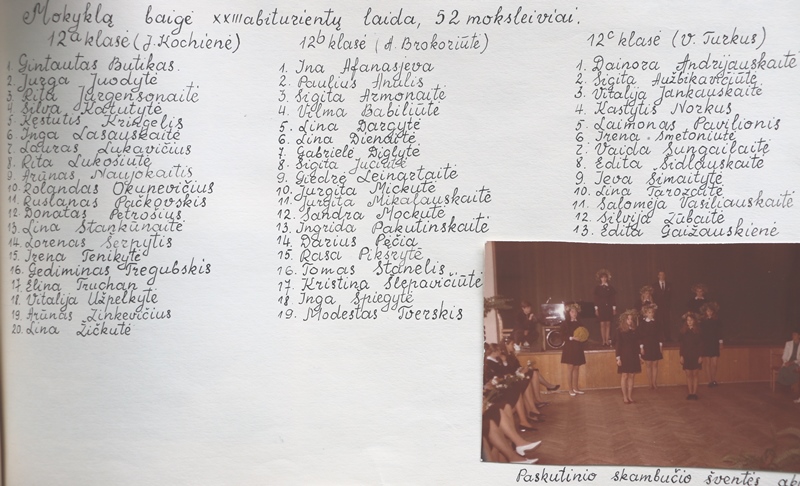 Mokyklą baigė XXIII abiturientų laida, 52 moksleiviai.
12ᵃ klasė (J. Kochienė)
1. Gintautas Butikas.
2. Jurga Juodytė
3. Rita Jurgensonaitė
4. Silva Kortutytė
5. Kęstutis Krikščelis
6. Inga Lasauskaitė
7. Lauras Lukavičius
8. Rita Lukošiūtė
9. Arūnas Naujokaitis
10. Rolandas Okunevičius
11. Ruslanas Pačkovskis
12. Donatas Petrošius
13. Lina Stankūnaitė
14. Lorenas Serpytis
15. Irena Tenikytė
16. Gediminas Tregubskis
17. Elina Truchan
18. Vitalija Užpelkytė
19. Arūnas Zinkevičius
20. Lina Žičkutė
12ᵇ klasė (A. Brokoriūtė)
1. Ina Afanasjeva
2. Paulius Anulis
3. Sigita Armonaitė
4. Vilma Babiliūtė
5. Lina Dargytė
6. Lina Dienaitė
7. Gabrielė Diglytė
8. Sigita Juciūtė
9. Giedrė Leinartaitė
10. Jurgita Mickutė
11. Jurgita Mikalauskaitė
12. Sandra Mockutė
13. Ingrida Pakutinskaitė
14. Darius Pečia
15. Rasa Pikšrytė
16. Tomas Stanelis
17. Kristina Slepavičiūtė
18. Inga Spiegytė
19. Modestas Tverskis
12ᶜ klasė (V. Turkus)
1. Dainora Andrijauskaitė
2. Sigita Aužbikavičiūtė
3. Vitalija Jankauskaitė
4. Kastytis Norkus
5. Laimonas Pavilionis
6. Irena Smetoniutė
7. Vaida Sungailaitė
8. Edita Šidlauskaitė
9. Ieva Šimaitytė
10. Lina Tarozaitė
11. Salomėja Vasiliauskaitė
12. Silvija Zūbaitė
13. Edita Gaižauskienė
Paskutinio skambučio šventės